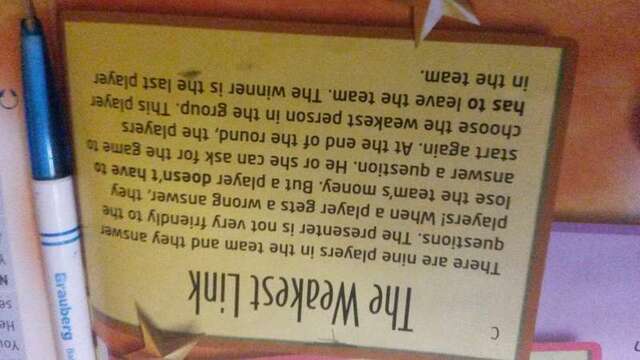 C
The Weakest Link
There are nine players in the team and they answer
questions. The presenter is not very friendly to the
players! When a player gets a wrong answer, they
lose the team's money. But a player doesn't have to
answer a question. He or she can ask for the game to
start again. At the end of the round, the players
choose the weakest person in the group. This player
has to leave the team. The winner is the last player
in the team.
Grauberg
You
He
se
N